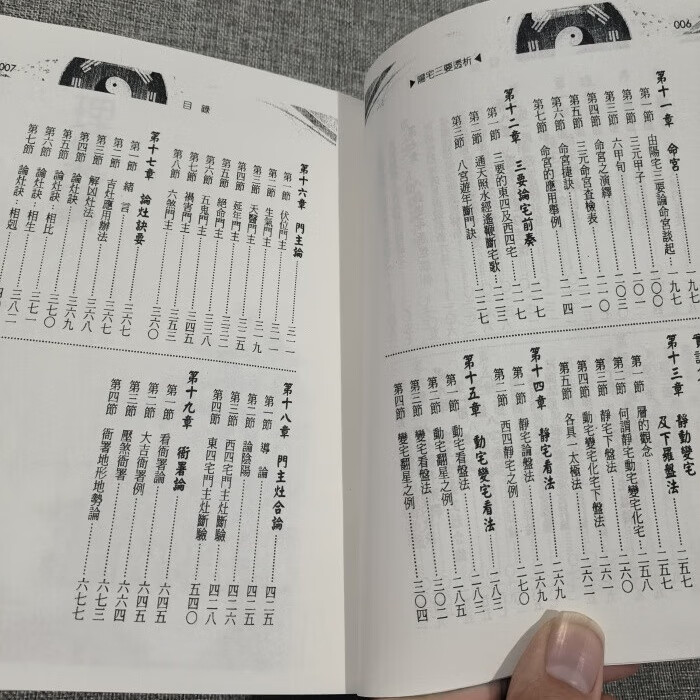 006
▶陽宅三要透析◀
第十一章 命宮……九七
第一節 由陽宅三要論命宮談起……九七
第二節 三元甲子……一〇〇
第三節 六甲旬……一〇二
第四節 命宮之演繹……一〇六
第五節 三元命宮查檢表……二一〇
第六節 命宮捷訣……二一一
第七節 命宮的應用舉例……二一四
第十二章 三要論宅前奏……二一七
第一節 三要的東四及西四宅……二一七
第二節 通天照水經遙鞭斷宅歌……二二三
第三節 八宮遊年斷門訣……二二七
第十三章 靜動變宅及下羅盤法……二五七
第一節 層的觀念……二五七
第二節 何謂靜宅動宅變宅化宅……二五八
第三節 靜宅下盤法……二六〇
第四節 動宅變宅化宅下盤法……二六一
第五節 各具一太極法
第十四章 靜宅看法……二六九
第一節 靜宅論盤法……二六九
第二節 西四靜宅之例……二七〇
第十五章 動宅變宅看法……二八三
第一節 動宅看盤法……二八三
第二節 動宅翻星之例……二八五
第三節 變宅看盤法……三〇〇
第四節 變宅翻星之例……三〇四
007
目錄
第十六章 門主論……三一一
第一節 伏位門主……三一一
第二節 生氣門主……三一一
第三節 天醫門主……三一九
第四節 延年門主……三二五
第五節 絕命門主……三三二
第六節 五鬼門主……三三八
第七節 禍害門主……三四五
第八節 六煞門主……三五三
第十七章 論灶訣要……三六〇
第一節 緒言……三六七
第二節 吉灶應用辦法
第三節 解凶灶法……三六八
第四節 論灶訣……三六九
第五節 論灶訣：相比……三七〇
第六節 論灶訣：相生……三七一
第七節 論灶訣：相剋……三八二
第十八章 門主灶合論……四二五
第一節 導論……四二五
第二節 論陰陽……四二六
第三節 西四宅門主灶斷驗……四二八
第四節 東四宅門主灶斷驗……五四〇
第十九章 衙署論……六四五
第一節 看衙署論……六四五
第二節 大吉衙署例……六六四
第三節 壓煞衙署……六七三
第四節 衙署地形地勢論……六七七